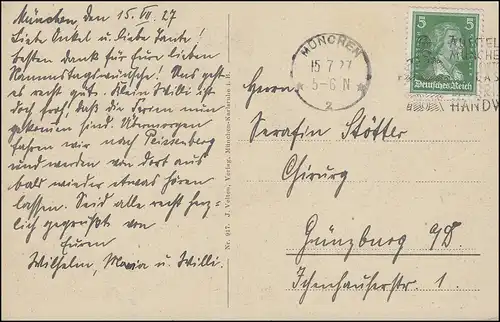 München, den 15. VII. 27
Liebe Onkel u. liebe Tante!
besten Dank für Eure lieben
Namenstagswünsche! Uns geht
es recht gut. Klein Willi ist
doch froh, daß die Ferien nun
gekommen sind. Übermorgen
fahren wir nach Peissenberg
und werden von dort aus
bald wieder etwas hören
lassen. Seid alle recht herz-
lich gegrüßt von
Euren
Wilhelm, Maria u. Willi.
Nr. 917. J. Velten, Verlag, München-Karlsruhe i. B.
MÜNCHEN
15 7. 27
5-6 N
2
5 5
Deutsches Reich
HANDW
Herrn
Serafin Stötter
Chirurg
Günzburg a/D.
Ichenhauserstr. 1.